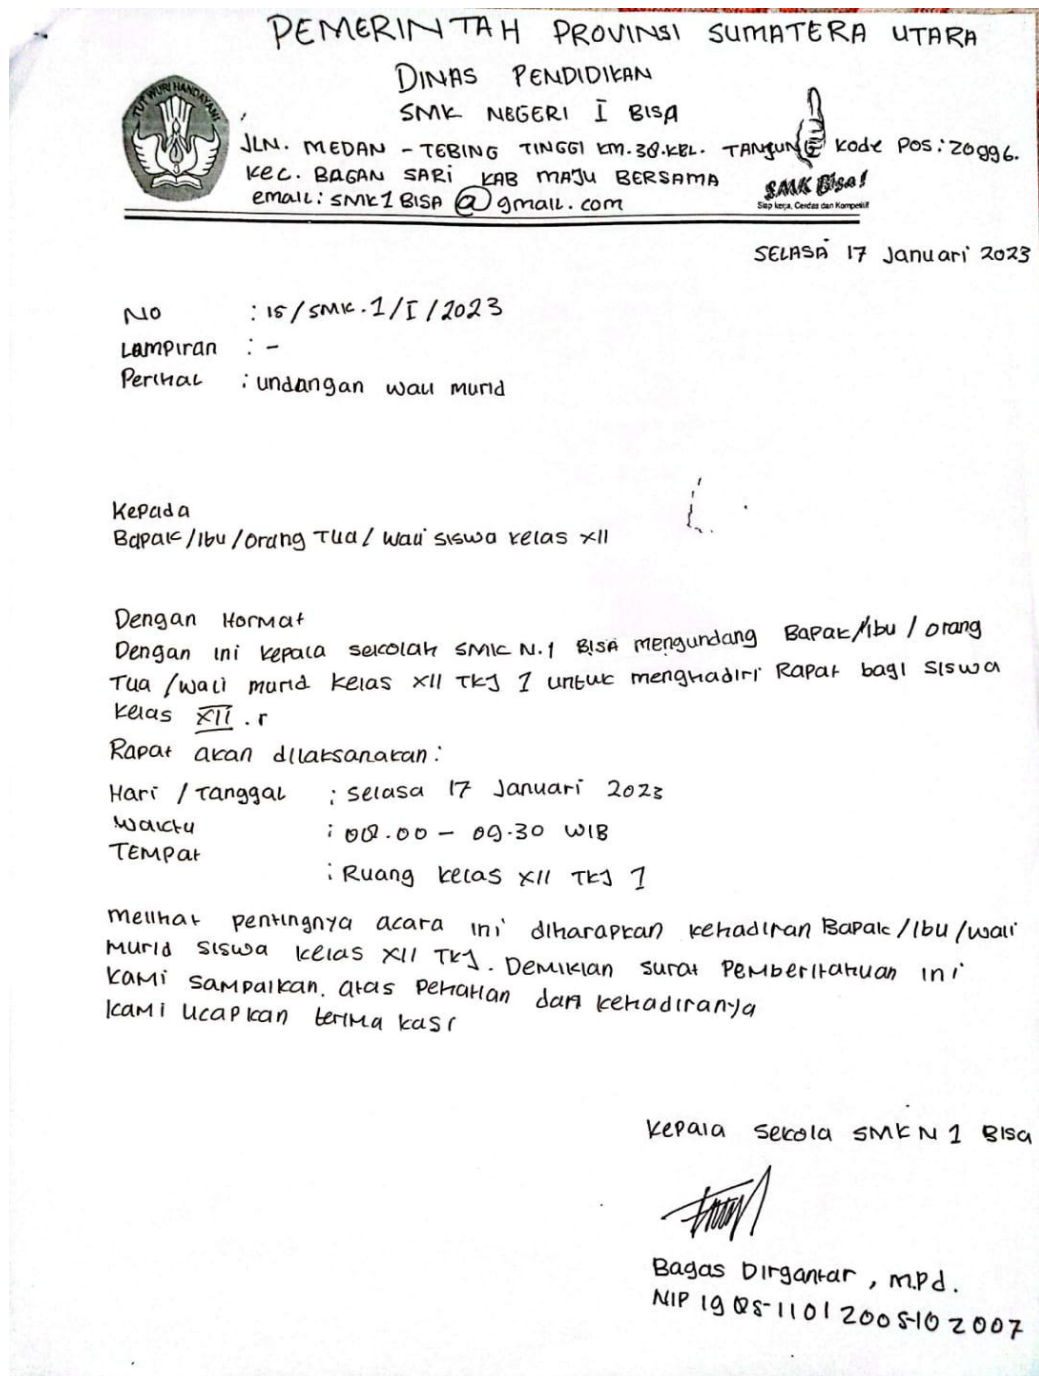 PEMERINTAH PROVINSI SUMATERA UTARA
DINAS PENDIDIKAN
SMK NEGERI I BISA
TUT WURI HANDAYANI
JLN. MEDAN - TEBING TINGGI KM.38.KEL. TANJUNG Kode Pos: 20996.
Kec. BAGAN SARI KAB MAJU BERSAMA
email: SMK1BISA@gmail.com
SMK Bisa!
Siap kerja, Cerdas dan Kompetitif
SELASA 17 Januari 2023
NO : 15/SMK.1/I/2023
Lampiran : -
Perihal : undangan wali murid
Kepada
Bapak/Ibu/Orang Tua/Wali siswa kelas XII
Dengan Hormat
Dengan ini kepala sekolah SMK N.1 BISA mengundang Bapak/Ibu/orang
Tua/wali murid kelas XII TKJ 1 untuk menghadiri Rapat bagi siswa
kelas XII.
Rapat akan dilaksanakan:
Hari / Tanggal : selasa 17 Januari 2023
Waktu : 08.00 - 09.30 WIB
TEMPat : Ruang kelas XII TKJ 1
melihat pentingnya acara ini diharapkan kehadiran Bapak/Ibu/wali
Murid siswa kelas XII TKJ. Demikian surat Pemberitahuan ini
kami sampaikan. atas Pehatian dan kehadiranya
kami ucapkan terima kasi
Kepala Sekola SMK N 1 BISa
Bagas Dirgantar, M.Pd.
NIP 19 85 1101 2005 10 2007